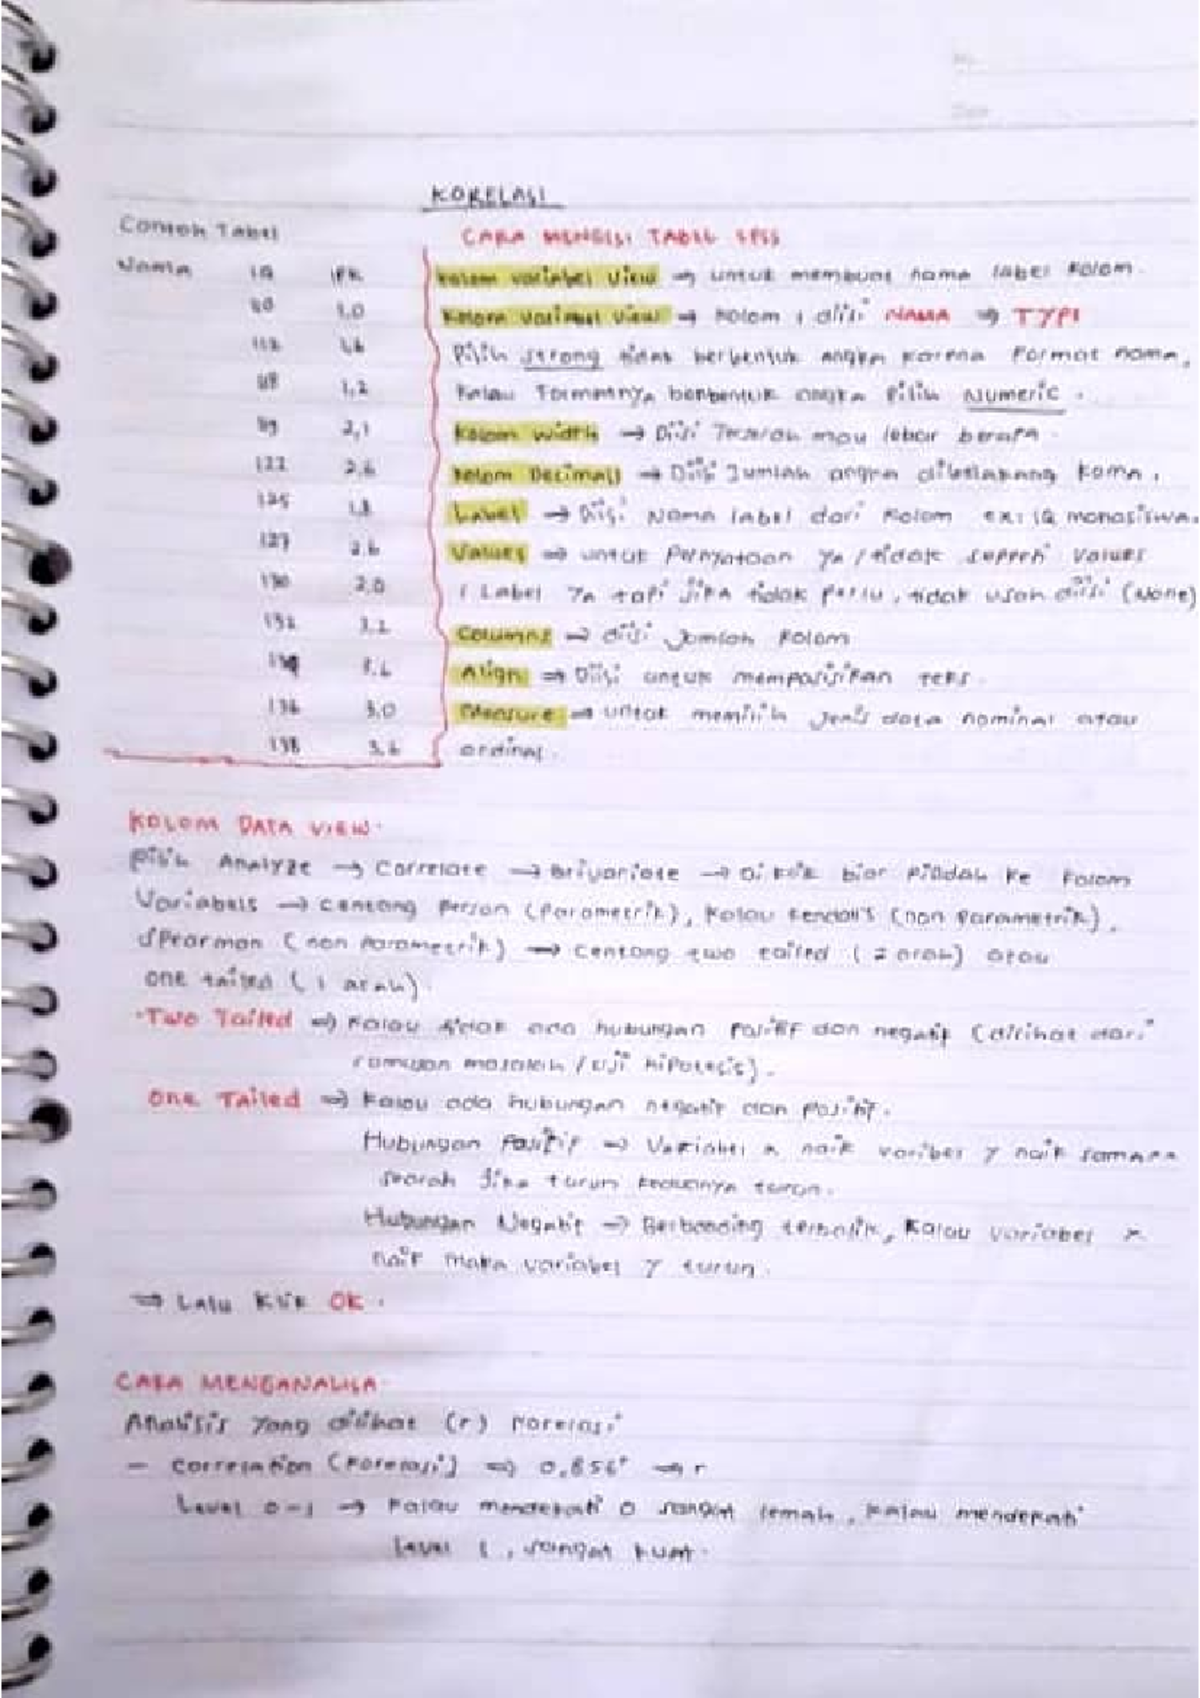 KORELASI
Contoh Tabel
CARA MENGISI TABEL SPSS
Nama IQ IPK
Kolom variabel View → untuk membuat nama label kolom.
1,0
Kolom Variabel View → kolom 1 diisi NAMA → TYPE
Pilih strong tidak berbentuk angka karena format nama,
1,2
kalau formatnya berbentuk angka pilih Numeric.
89 2,1
Kolom width → Diisi Terserah mau lebar berapa.
122 2,6
Kolom Decimals → Diisi Jumlah angka dibelakang koma.
125 1,8
Label → Diisi Nama label dari kolom ex: IQ mahasiswa.
127 2,6
Values → untuk Pernyataan Ya / tidak seperti values
130 2,0
1 Label Ya tapi jika tidak perlu, tidak usah diisi (None)
132 3,2
Columns → diisi Jumlah kolom
Align → Diisi untuk memposisikan teks.
136 3,0
Measure → untuk memilih jenis data nominal atau
138 3,6
ordinal.
KOLOM DATA VIEW.
Pilih Analyze → Correlate → Brivariate → Di klik biar pindah ke kolom
Variabels → Centang Person (Parametrik), kalau Kendall's (non parametrik),
Spearman (non parametrik) → centang two tailed (2 arah) atau
one tailed (1 arah).
·Two Tailed → Kalau tidak ada hubungan Positif dan negatif (dilihat dari
rumusan masalah / uji hipotesis).
One Tailed → Kalau ada hubungan negatif dan Positif.
Hubungan Positif → Variabel x naik varibel y naik samara
searah jika turun keduanya turun.
Hubungan Negatif → Berbanding terbalik, kalau variabel x
naik maka variabel y turun.
→ Lalu Klik OK.
CARA MENGANALISA
Analisis Yang dilihat (r) korelasi
- Correlation (korelasi) → 0,856* → r
Level 0-1 → Kalau mendekati 0 sangat lemah, kalau mendekati
level 1, sangat kuat.